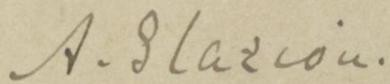 A. Glaziou.